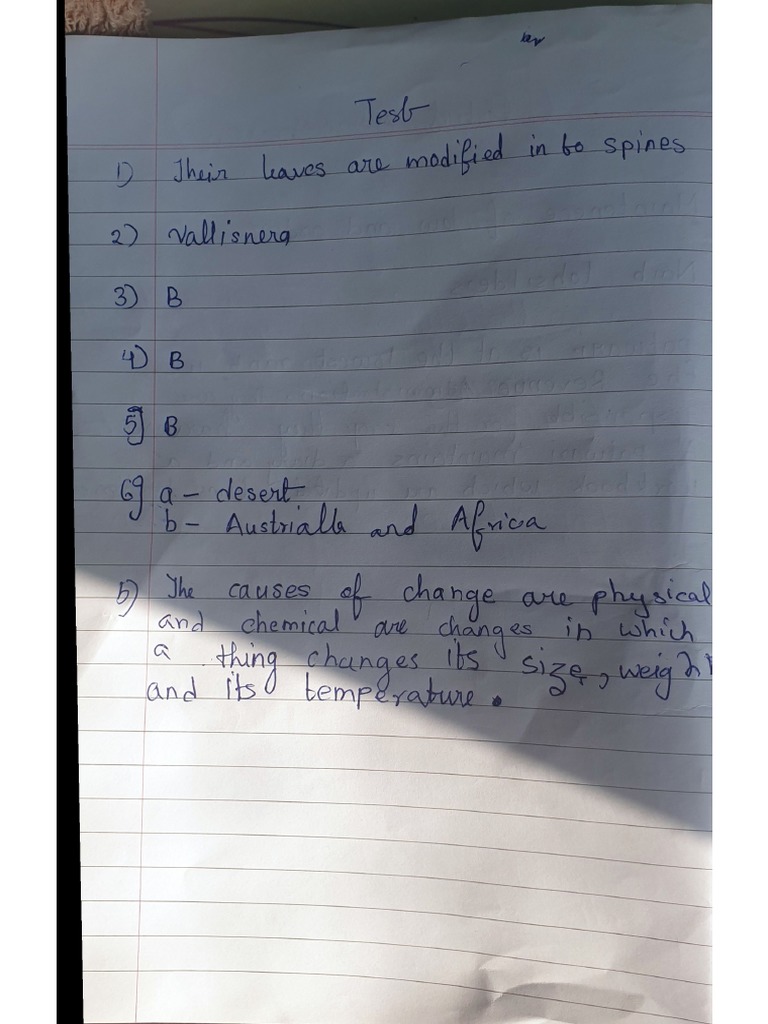 Test
1) Their leaves are modified in to spines
2) Vallisnera
3) B
4) B
5) B
6) a - desert
b - Austrialla and Africa
5) The causes of change are physical
and chemical are changes in which
a thing changes its size, weight
and its temperature.